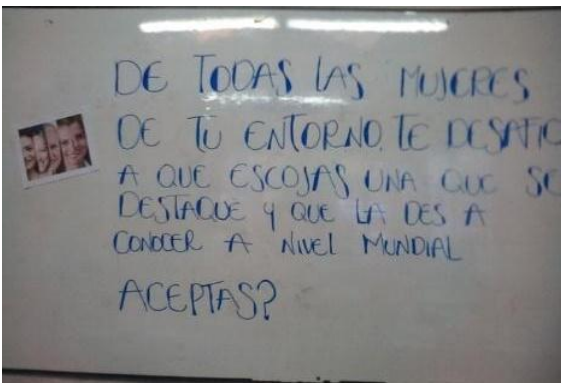 DE TODAS LAS MUJERES
DE TU ENTORNO, TE DESAFIO
A QUE ESCOJAS UNA QUE SE
DESTAQUE Y QUE LA DES A
CONOCER A NIVEL MUNDIAL
ACEPTAS?